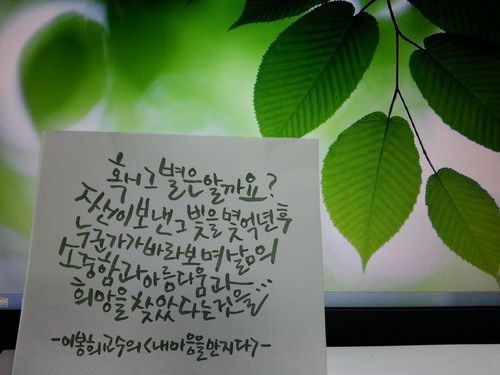 혹시 그 별은 알까요?
자신이 보낸 그 빛을 몇 억년 후
누군가가 바라보며 삶의
소중함과 아름다움과...
희망을 찾았다는 것을
-이봉희 교수의 <내 마음을 만지다>-